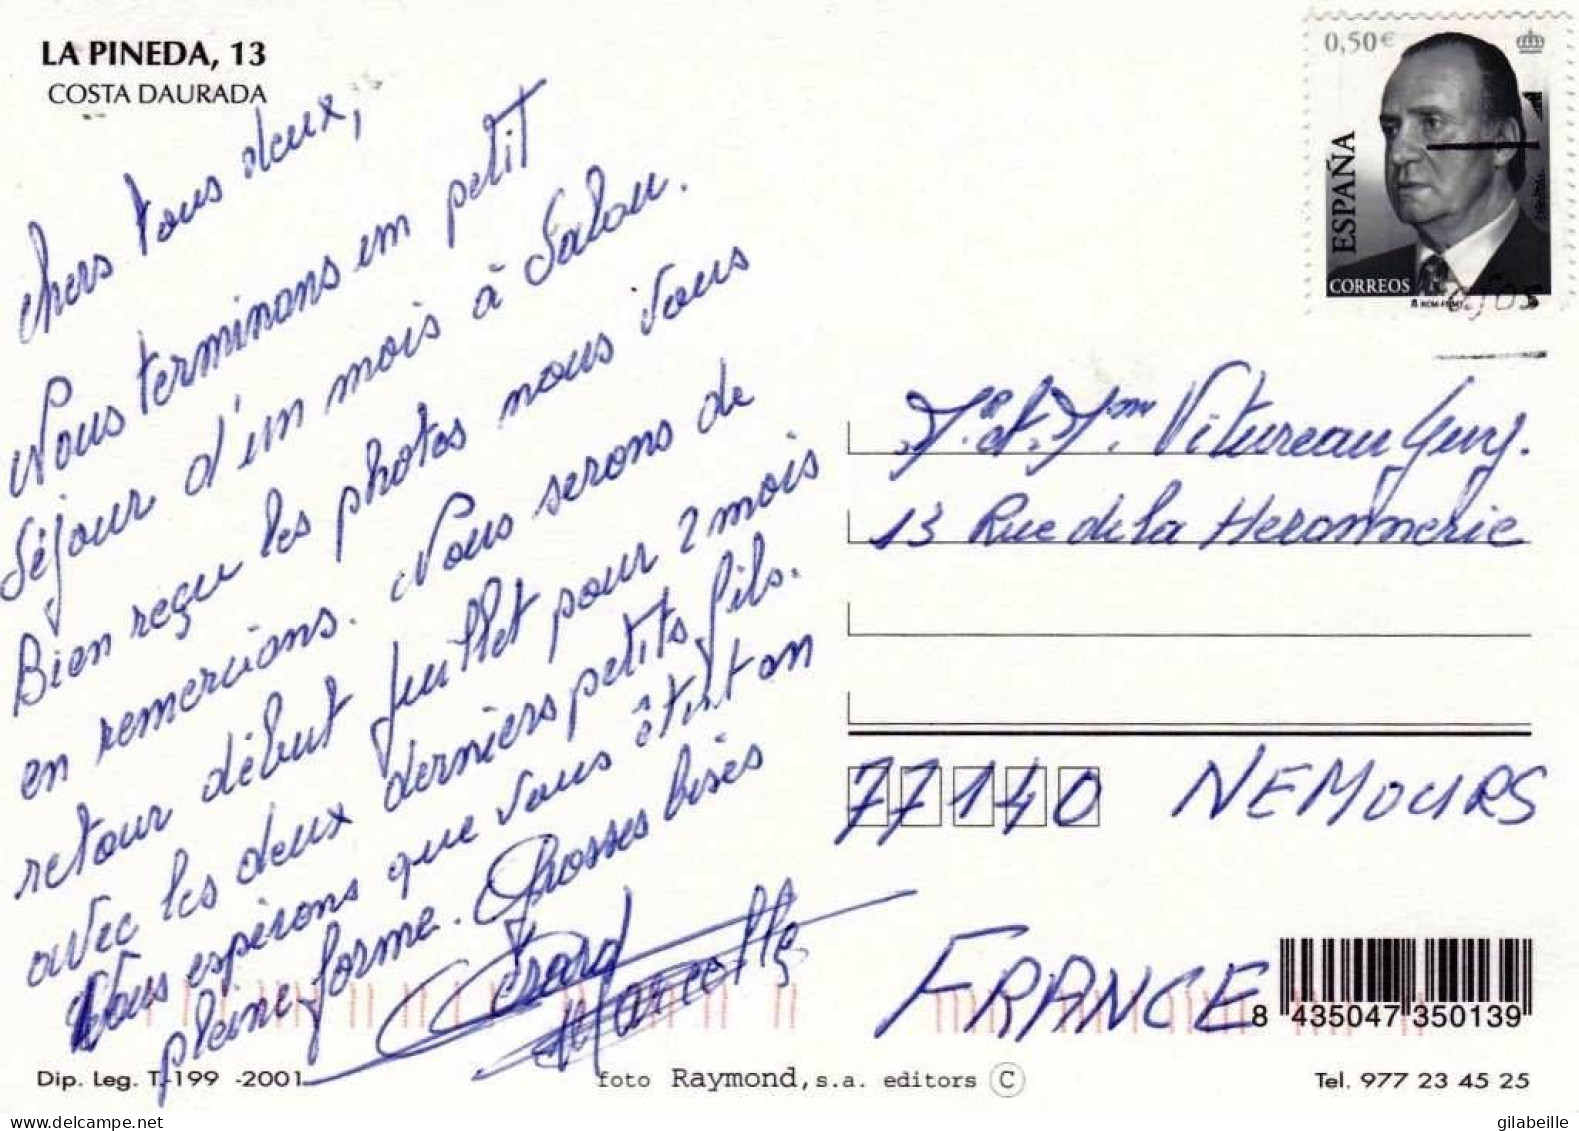 LA PINEDA, 13
COSTA DAURADA
chers tous deux,
Nous terminons un petit
séjour d'un mois à Salou.
Bien reçu les photos nous vous
en remercions. Nous serons de
retour début juillet pour 2 mois
avec les deux derniers petits fils.
Nous espérons que vous êtes
pleine forme. Grosses bises
Gérard
Marcelle
0,50€
ESPAÑA
CORREOS
Vitureau Guy.
13 Rue de la Heronnerie
77140 NEMOURS
FRANCE
8 435047 350139
Dip. Leg. T-199 -2001
foto Raymond, s.a. editors ©
Tel. 977 23 45 25
gilabeille